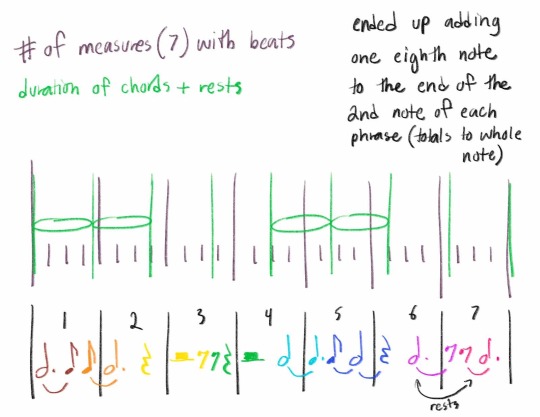 # of measures (7) with beats
duration of chords + rests
ended up adding
one eighth note
to the end of the
2nd note of each
phrase (totals to whole
note)
1 2 3 4 5 6 7
rests